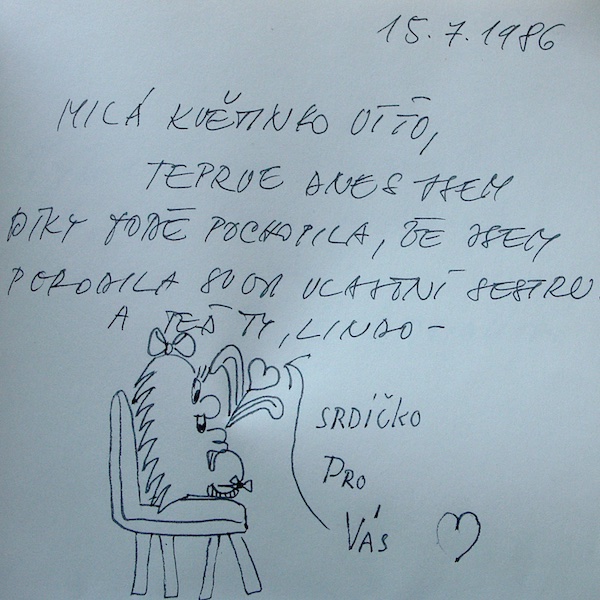 15.7.1986
MILÁ KVĚTINKO OTTO,
TEPRVE DNES JSEM
DÍKY TOBĚ POCHOPILA, ŽE JSEM
PORODILA SVOU VLASTNÍ SESTRU.
A TEĎ TY, LINDO –
SRDÍČKO
PRO
VÁS